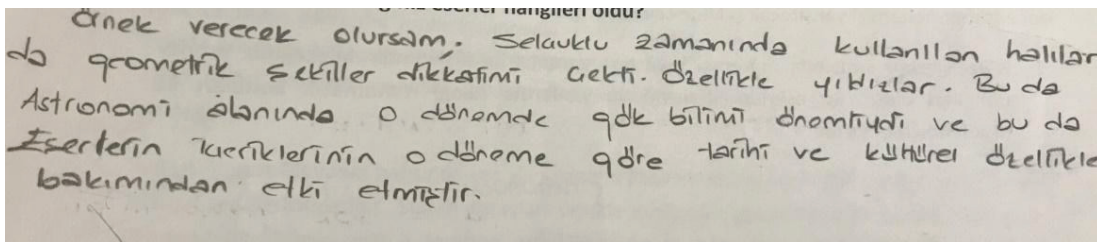 eserler hangileri oldu?
örnek verecek olursam. Selçuklu zamanında kullanılan halılar
da geometrik şekiller dikkatimi çekti. Özellikle yıldızlar. Bu da
Astronomi alanında o dönemde gök bilimi önemliydi ve bu da
Eserlerin içeriklerinin o döneme göre tarihi ve kültürel özellikle
bakımından etki etmiştir.